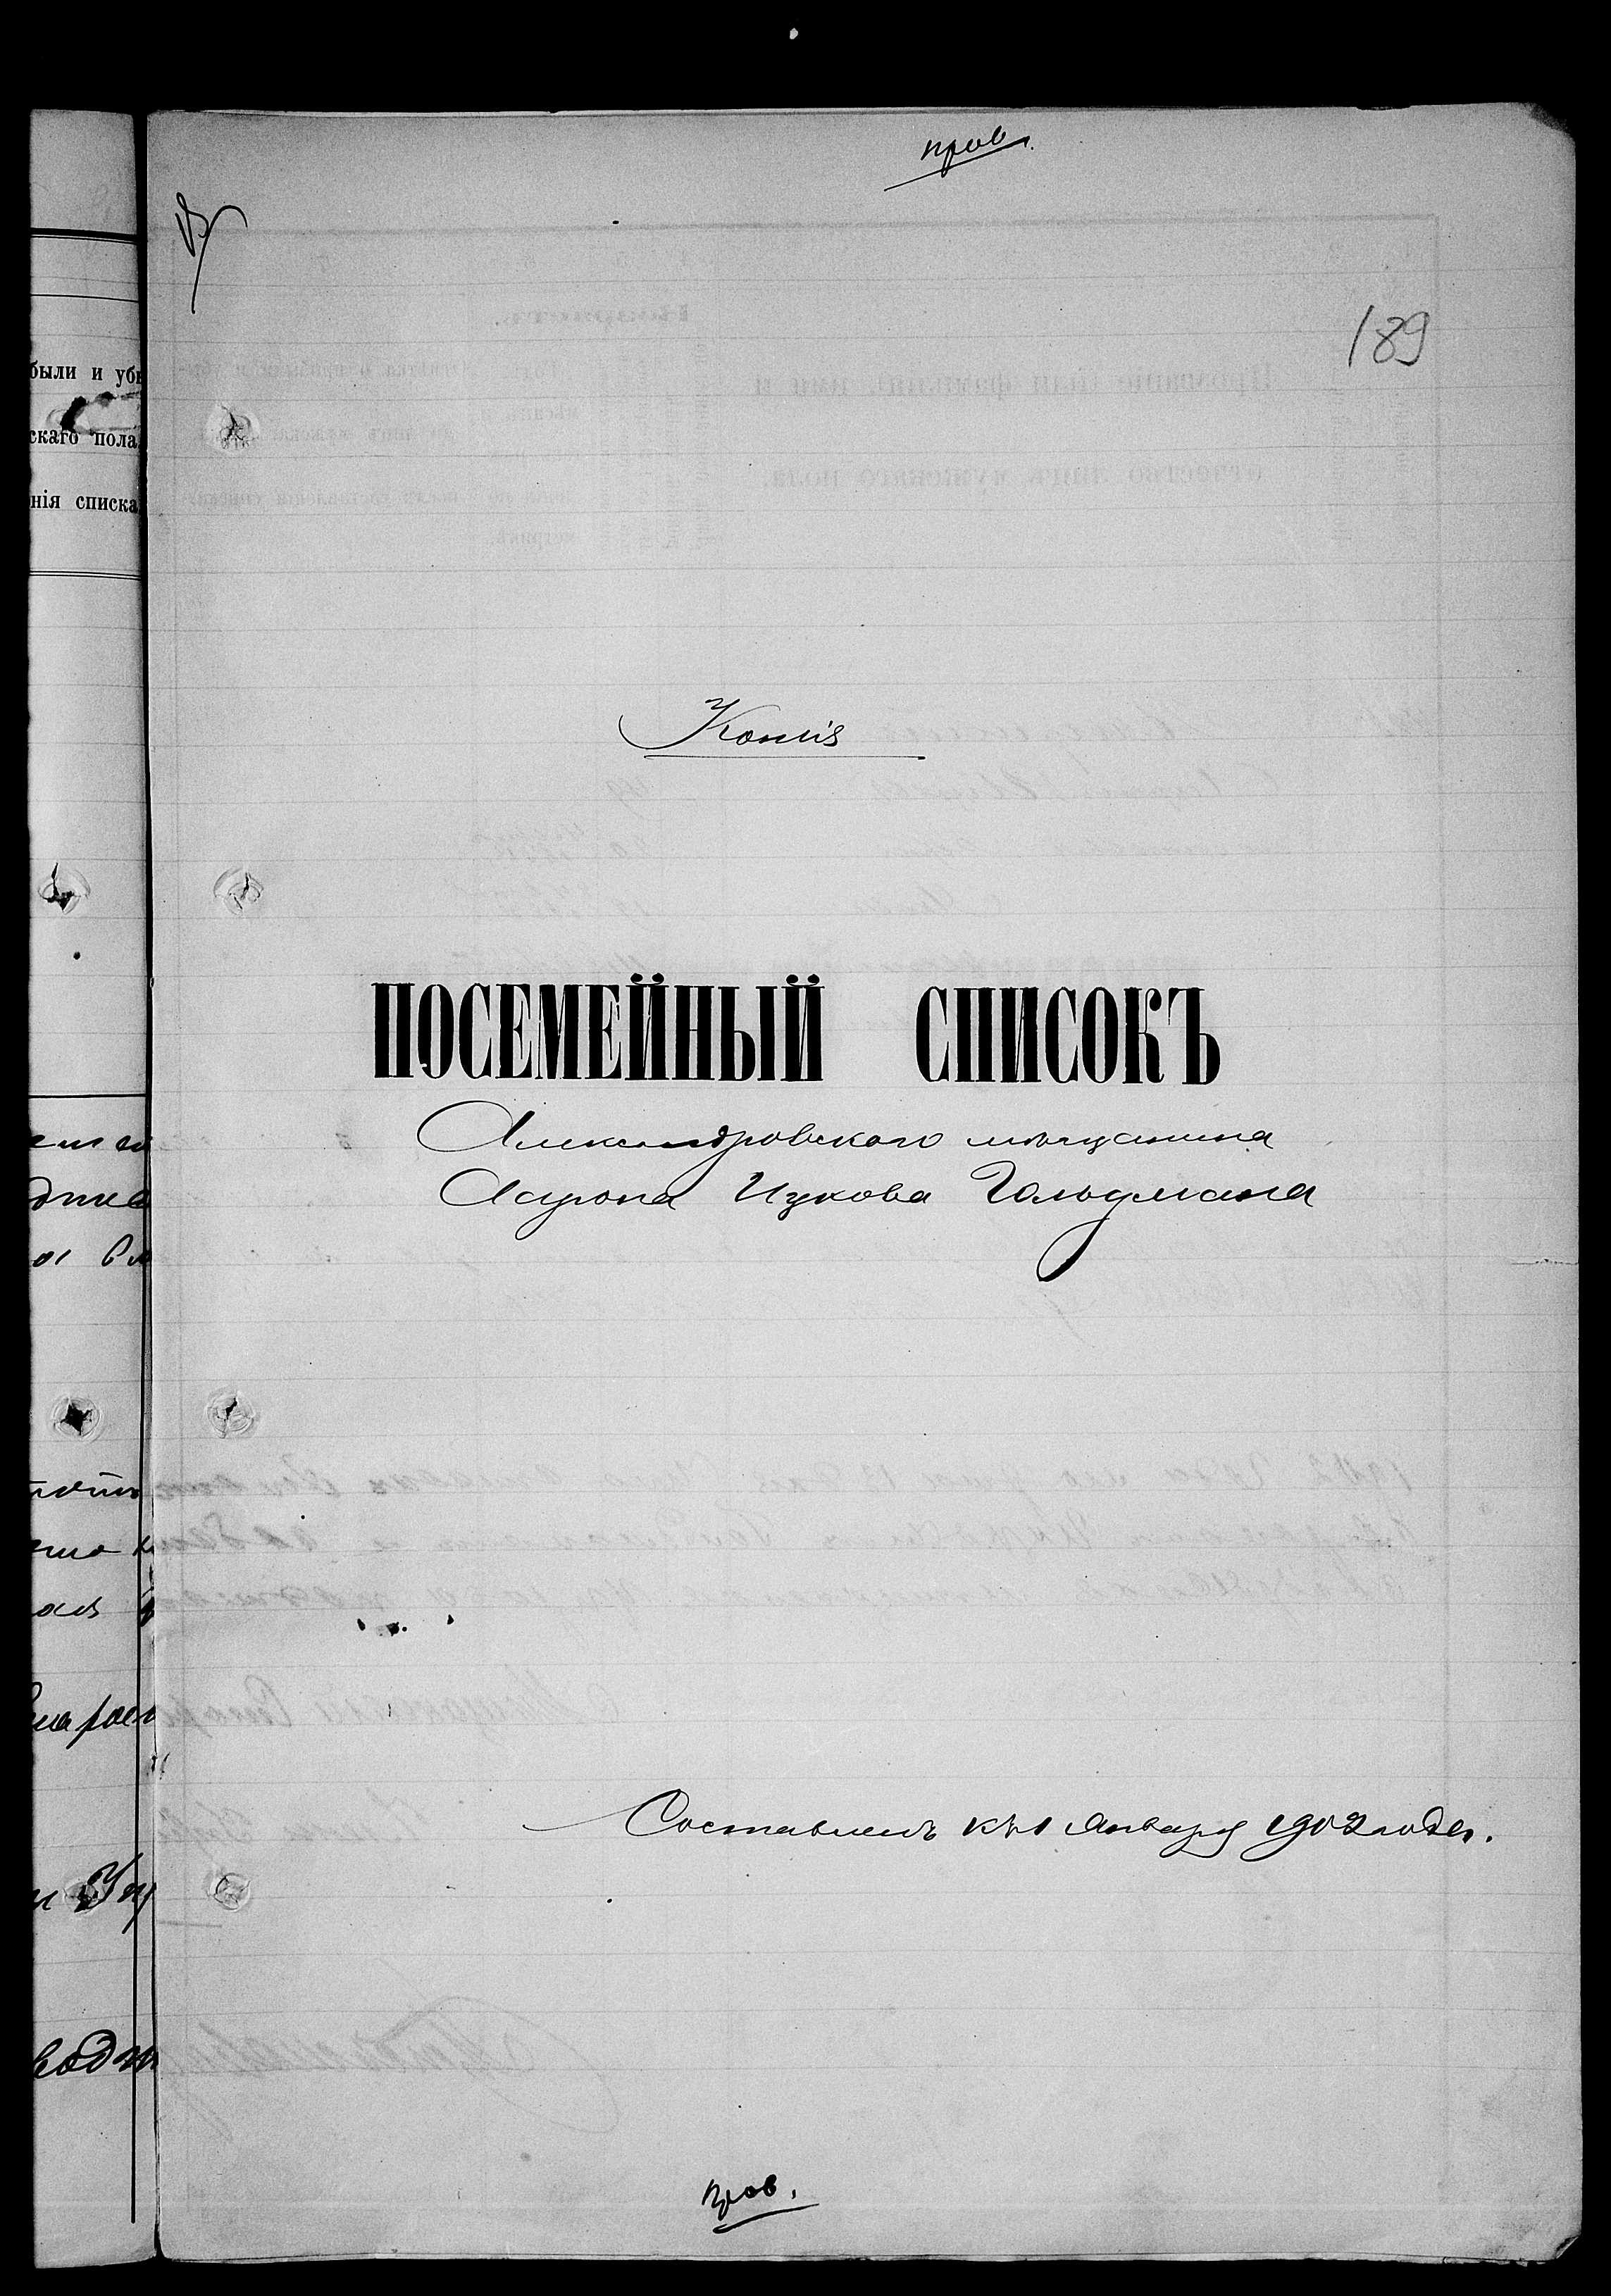 пров.
189
были и убы
скаго пола
нія списка
Копія
ПОСЕМЕЙНЫЙ СПИСОКЪ
Александровскаго мѣщанина
Аарона Ицкова Гольдмана
Составленъ къ 1 Января 1902 года.
пров.